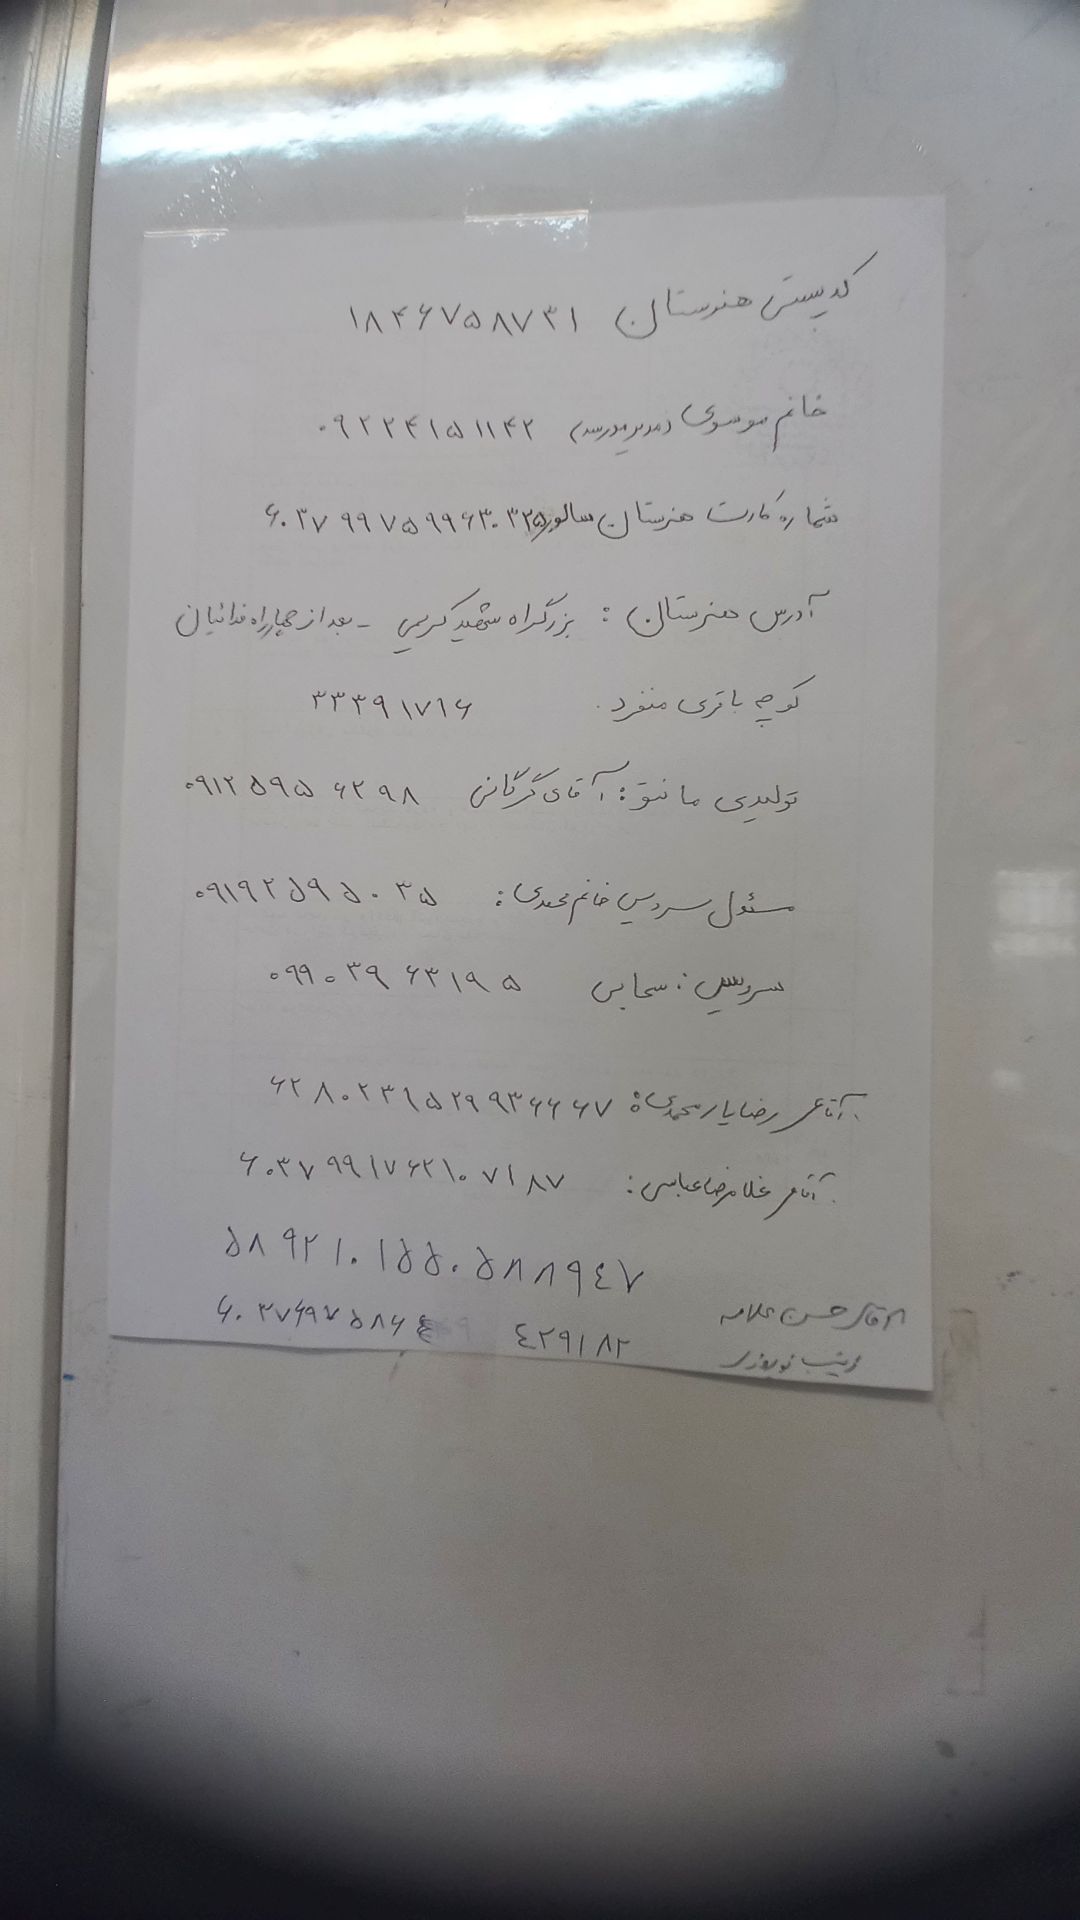 کدپستی هنرستان ۱۸۴۶۷۵۸۷۳۱
خانم موسوی (مدیر مدرسه) ۰۹۲۲۴۱۵۱۱۴۲
شماره کارت هنرستان سالور ۶۰۳۷۹۹۷۵۹۹۶۳۰۳۲۵
آدرس هنرستان : بزرگراه شهید کریمی - بعد از چهارراه فدائیان
کوچه باقری منفرد . ۳۳۳۹۱۷۱۶
تولیدی مانتو : آقای گرگانی ۰۹۱۲۵۹۵۶۲۹۸
مسئول سرویس خانم محمدی : ۰۹۱۹۲۵۹۵۰۳۵
سرویس : سحابی ۰۹۹۰۳۹۶۳۱۹۵
آقای رضا یارمحمدی : ۶۲۸۰۲۳۱۵۲۹۹۳۶۶۶۷
آقای غلامرضا عباسی : ۶۰۳۷۹۹۱۷۶۲۱۰۷۱۸۷
۵۸۹۲۱۰۱۵۵۰۵۸۸۹۴۷
آقای حسن علامه
زینب نوروزی ۴۲۹۱۸۲